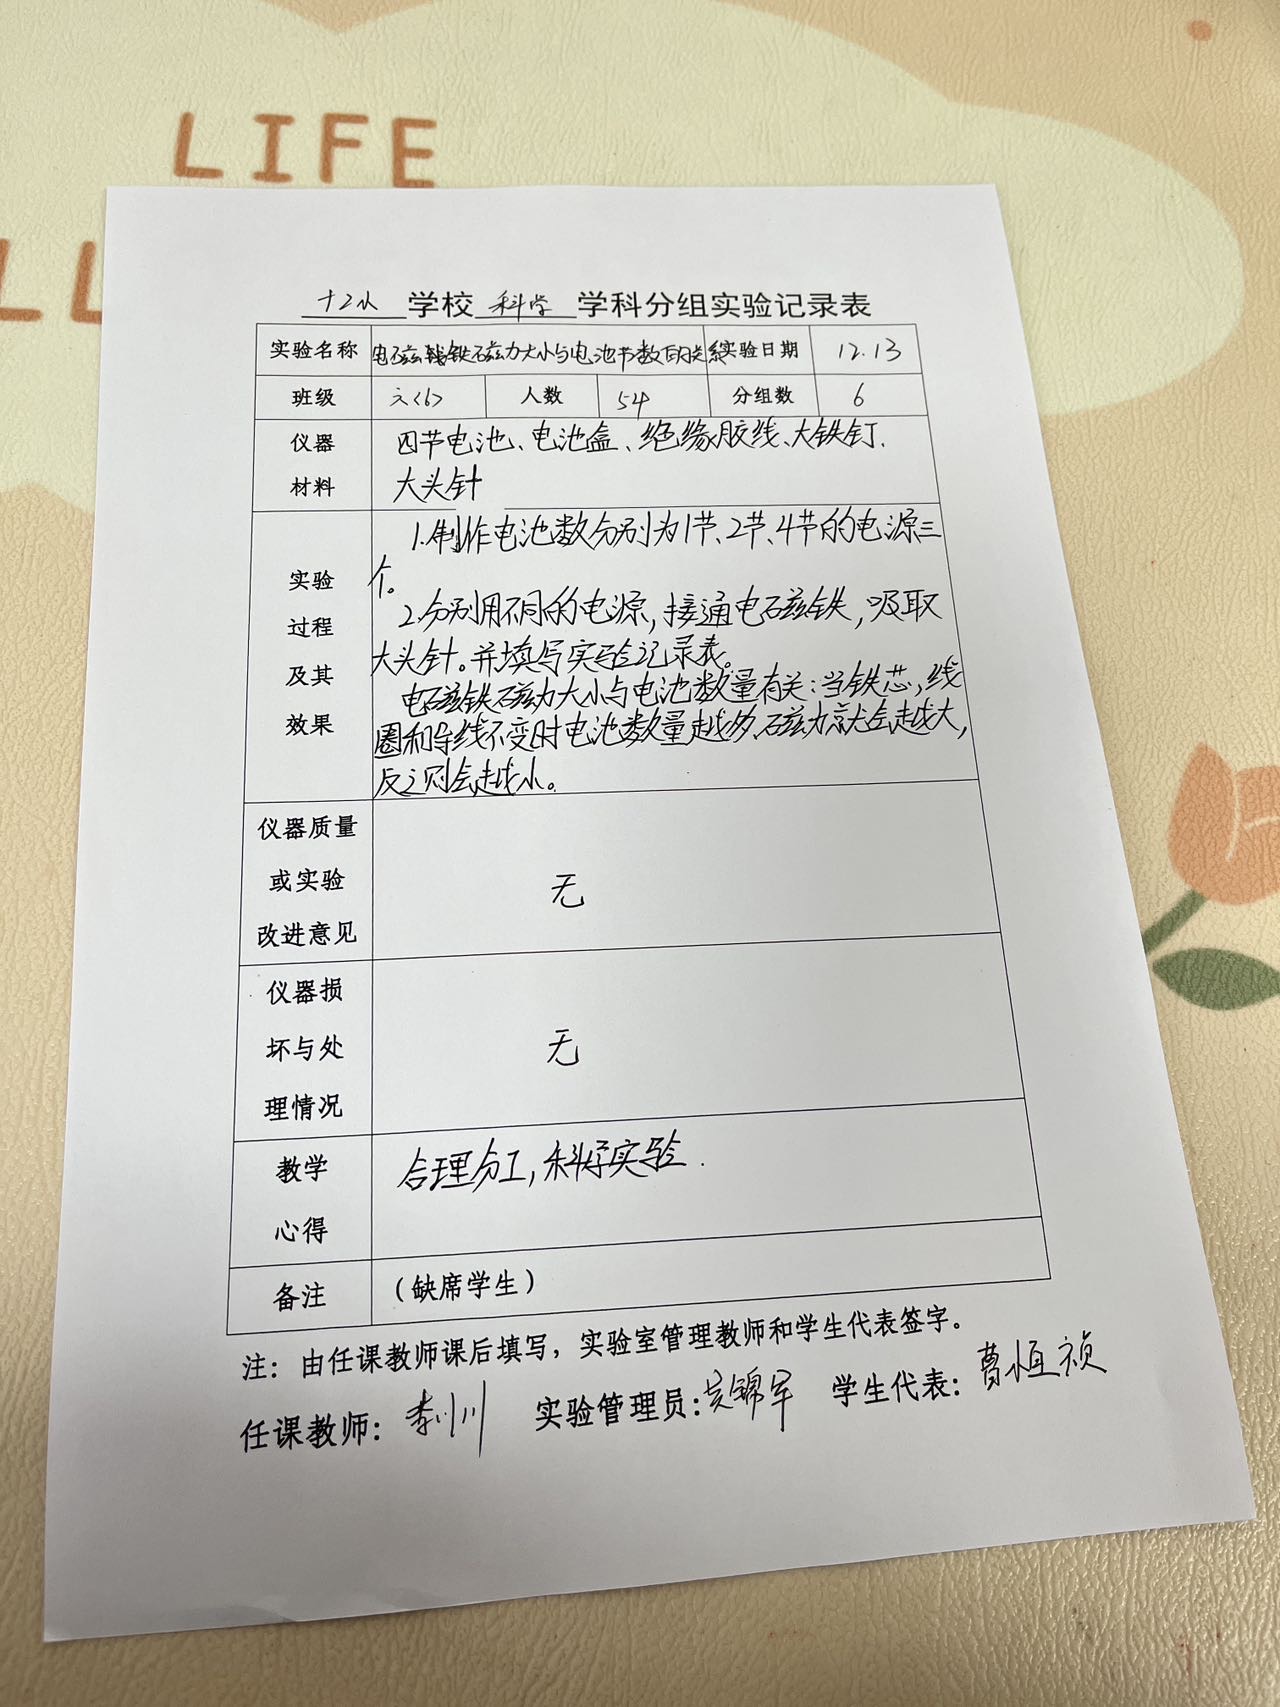 LIFE
LL
十二小 学校 科学 学科分组实验记录表
实验名称 电磁铁磁力大小与电池节数的关系 实验日期 12.13
班级 六<6> 人数 54 分组数 6
仪器 四节电池、电池盒、绝缘胶线、大铁钉.
材料 大头针
1.制作电池数分别为1节、2节、4节的电源三
实验 个。
过程 2.分别用不同的电源,接通电磁铁,吸取
大头针。并填写实验记录表。
及其 电磁铁磁力大小与电池数量有关:当铁芯,线
效果 圈和导线不变时电池数量越多、磁力就会越大,
反之则会越小。
仪器质量
或实验 无
改进意见
仪器损
坏与处 无
理情况
教学 合理分工,科学实验.
心得
备注 (缺席学生)
注:由任课教师课后填写,实验室管理教师和学生代表签字。
任课教师:李川川 实验管理员:吴锦军 学生代表:曹恒祯